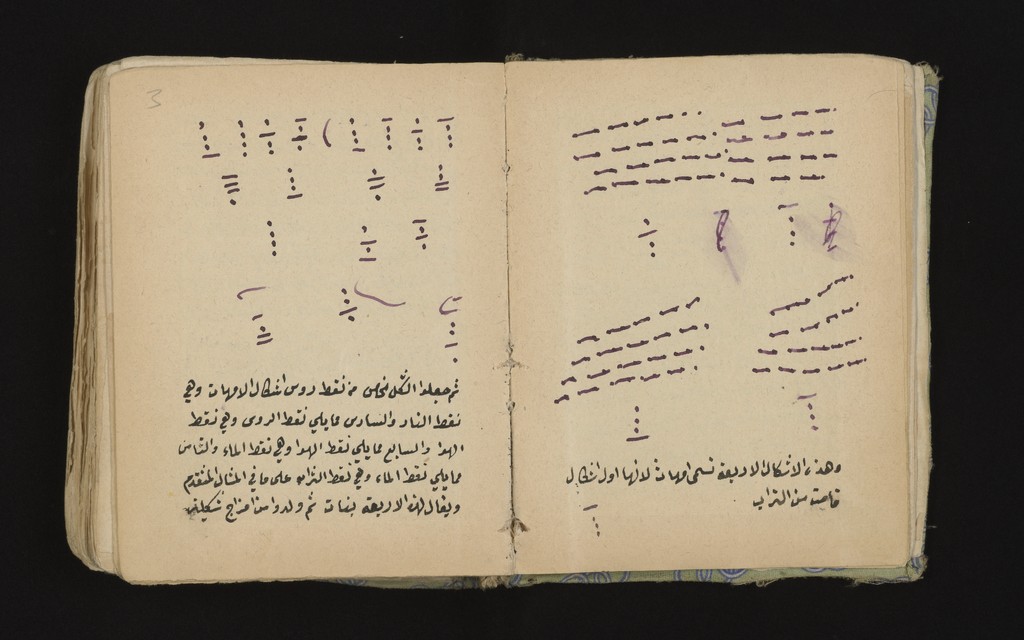 وهذه الاشكال الاربعة تسمى امهات لانها اول اشكال
قامت من التراب
3
ثم جعلوا الشكل الخامس من نقط روس اشكال الامهات وهي
نقط النار والسادس مما يلي نقط الروس وهي نقط
الهوا والسابع مما يلي نقط الهوا وهي نقط الماء والثامن
مما يلي نقط الماء وهي نقط التراب على ما في المثال المتقدم
ويقال لهذه الاربعة بنات ثم ولدوا من امزاج شكلين